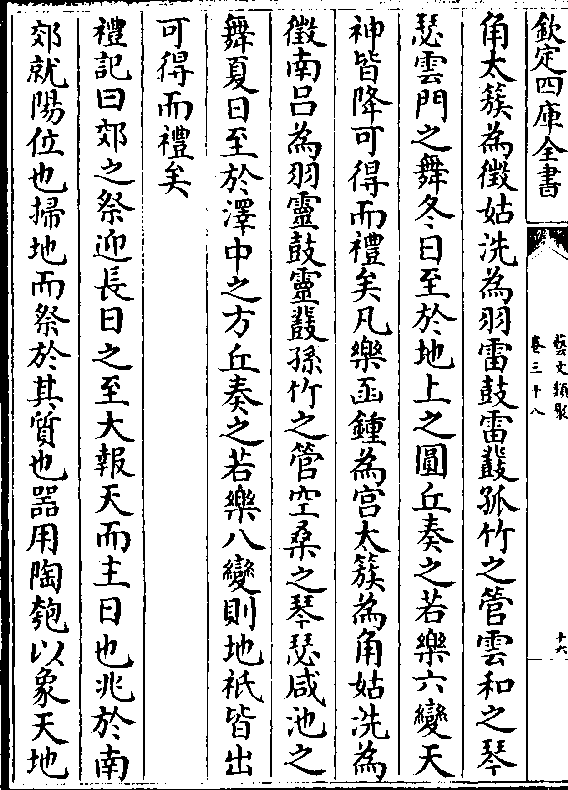 欽定四庫全書
藝文類聚
卷三十八
十六
角太簇為徵姑洗為羽雷鼓雷鼗孤竹之管雲和之琴
瑟雲門之舞冬日至於地上之圓丘奏之若樂六變天
神皆降可得而禮矣凡樂函鍾為宫太簇為角姑洗為
徵南呂為羽靈鼓靈鼗孫竹之管空桑之琴瑟咸池之
舞夏日至於澤中之方丘奏之若樂八變則地祇皆出
可得而禮矣
禮記曰郊之祭迎長日之至大報天而主日也兆於南
郊就陽位也掃地而祭於其質也器用陶匏以象天地